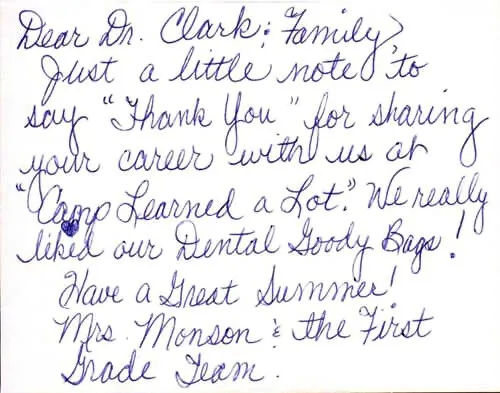 Dear Dr. Clark & Family,
Just a little note to
say "Thank You" for sharing
your career with us at
"Camp Learned a Lot." We really
liked our Dental Goody Bags!
Have a Great Summer!
Mrs. Monson & the First
Grade Team.